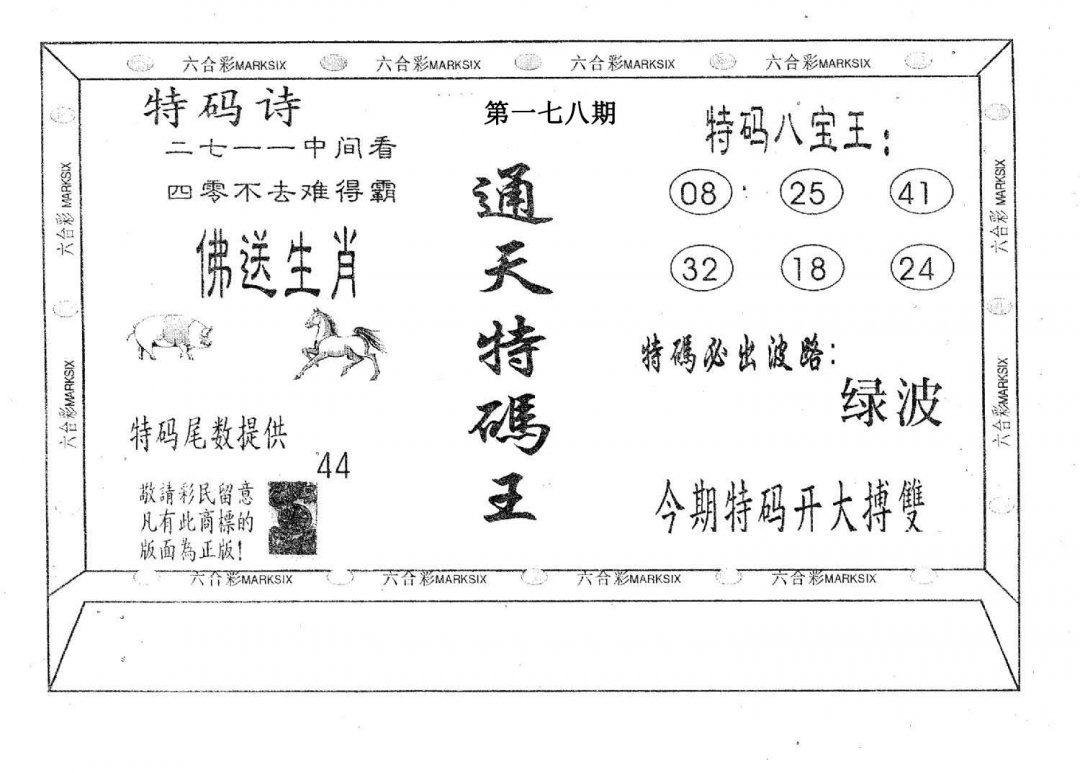 六合彩MARKSIX 六合彩MARKSIX 六合彩MARKSIX 六合彩MARKSIX
特码诗
二七一一中间看
四零不去难得霸
佛送生肖
特码尾数提供
44
敬請彩民留意
凡有此商標的
版面為正版!
第一七八期
通天特碼王
特码八宝王:
08 25 41
32 18 24
特碼必出波路:
绿波
今期特码开大搏雙
六合彩MARKSIX
六合彩MARKSIX
六合彩MARKSIX
六合彩MARKSIX
六合彩MARKSIX 六合彩MARKSIX 六合彩MARKSIX 六合彩MARKSIX